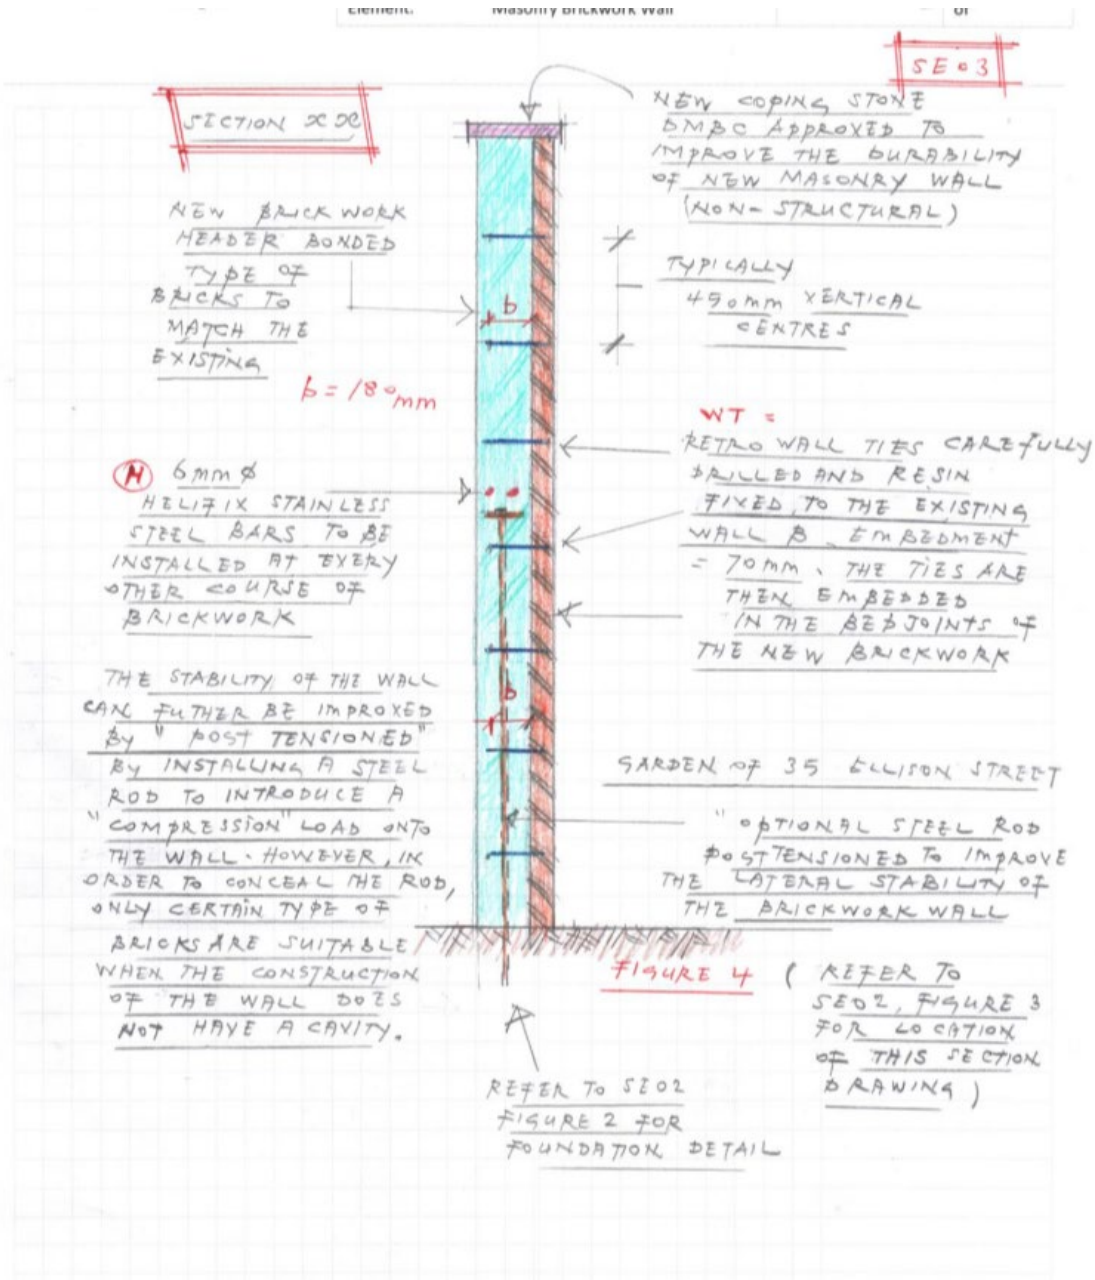 Element: Masonry Brickwork Wall of
SE03
SECTION XX
NEW COPING STONE
DMBC APPROVED TO
IMPROVE THE DURABILITY
OF NEW MASONRY WALL
(NON-STRUCTURAL)
NEW BRICKWORK
HEADER BONDED
TYPE OF
BRICKS TO
MATCH THE
EXISTING
TYPICALLY
450mm VERTICAL
CENTRES
b
b = 180mm
WT =
RETRO WALL TIES CAREFULLY
DRILLED AND RESIN
FIXED TO THE EXISTING
WALL B. EMBEDMENT
= 70mm. THE TIES ARE
THEN EMBEDDED
IN THE BED JOINTS OF
THE NEW BRICKWORK
H 6mm ϕ
HELIFIX STAINLESS
STEEL BARS TO BE
INSTALLED AT EVERY
OTHER COURSE OF
BRICKWORK
THE STABILITY OF THE WALL
CAN FUTHER BE IMPROVED
By "POST TENSIONED"
BY INSTALLING A STEEL
ROD TO INTRODUCE A
"COMPRESSION" LOAD ONTO
THE WALL. HOWEVER, IN
ORDER TO CONCEAL THE ROD,
ONLY CERTAIN TYPE OF
BRICKS ARE SUITABLE
WHEN THE CONSTRUCTION
OF THE WALL DOES
NOT HAVE A CAVITY.
b
GARDEN OF 35 ELLISON STREET
"OPTIONAL STEEL ROD
POST TENSIONED TO IMPROVE
THE LATERAL STABILITY OF
THE BRICKWORK WALL
FIGURE 4 (REFER TO
SE02, FIGURE 3
FOR LOCATION
OF THIS SECTION
DRAWING)
REFER TO SE02
FIGURE 2 FOR
FOUNDATION DETAIL